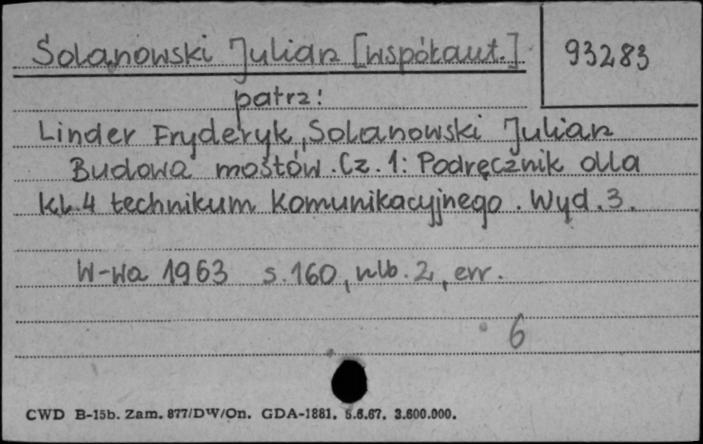 Solanowski Julian [współaut.]
93283
patrz:
Linder Fryderyk, Solanowski Julian
Budowa mostów. Cz. 1: Podręcznik dla
kl. 4 technikum komunikacyjnego. Wyd. 3.
W-wa 1963 s. 160, nlb. 2, err.
6
CWD B-15b. Zam. 877/DW/On. GDA-1881. 5.6.67. 3.600.000.